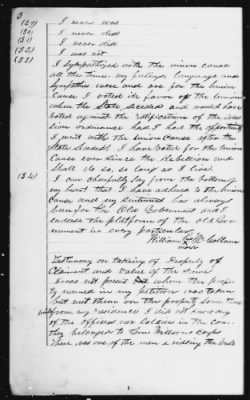 3
(29) I never was
(30) I never did
(31) I never did
(32) I was not
(33) I Sympathized with the union cause
all the time. my feelings language and
Sympathies were and are for the Union
Cause I voted in favor of the Union
when the State seceded and would have
voted against the ratification of the seces
sion ordinances had I had the opportunity
I went with the Union Cause after the
State Seceded. I have voted for the Union
Cause ever since the Rebellion and
Shall do so, so long as I live
(34) I can cheerfully Say from the bottom of
my heart that I have adhered to the Union
Cause and my sentiment has always
been for the Old Government and I
endorse the platform of the old Gov
ernment in every particular.
William his McCollum
mark
Testimony on taking of Property of
Claimant and Value of the same
I was not present when the prop
erty named in my petition was taken
but
from my residence I did not know any
of the officers nor Soldiers in the com
they belonged to Genl Wilsons Corps
There was one of the men a riding the mule